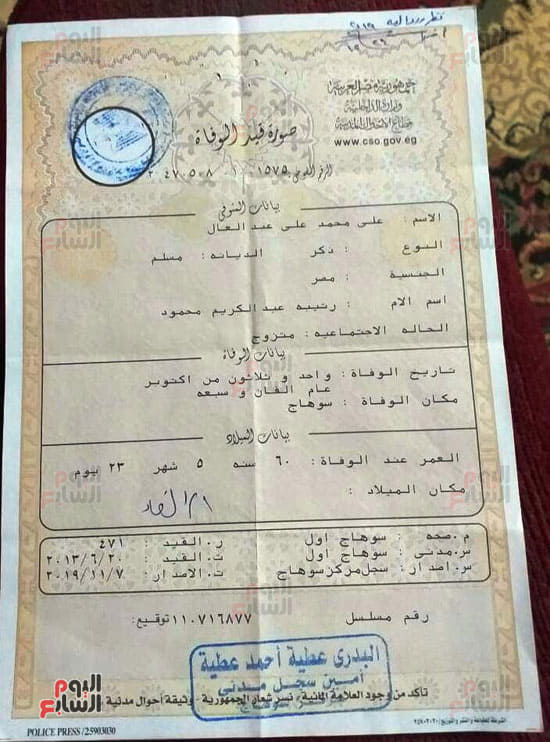 نظر وردا اليه ٢٠١٩
جمهورية مصر العربية
وزارة الداخلية
قطاع الأحوال المدنية
www.cso.gov.eg
صورة قيد الوفاة
الرقم القومى ٢٤٧٠٥٠٨ ٠١ ٠١٥٧٥
بيانات المتوفى
الاسم : على محمد على عبد العال
النوع : ذكر الديانه : مسلم
الجنسية : مصر
اسم الام : رتيبه عبد الكريم محمود
الحاله الاجتماعيه : متزوج
بيانات الوفاة
تاريخ الوفاة : واحد و ثلاثون من اكتوبر
عام الفان و سبعه
مكان الوفاة : سوهاج
بيانات الميلاد
العمر عند الوفاة : ٦٠ سنه ٥ شهر ٢٣ يوم
مكان الميلاد :
م.صحه : سوهاج اول ر.القيد : ٤٧١
س.مدنى : سوهاج اول ت.القيد : ٢٠١٣/٦/٢٠
س.اصدار : سجل مركز سوهاج ت.الاصدار : ٢٠١٩/١١/٧
رقم مسلسل ١١٠٧١٦٨٧٧ توقيع :
البدرى عطية أحمد عطية
أمين سجل مدنى
تأكد من وجود العلامة المائية - نسر شعار الجمهورية - وثيقة أحوال مدنية
POLICE PRESS /25903030
الشرطة للطباعة والنشر والتوزيع
اليوم السابع